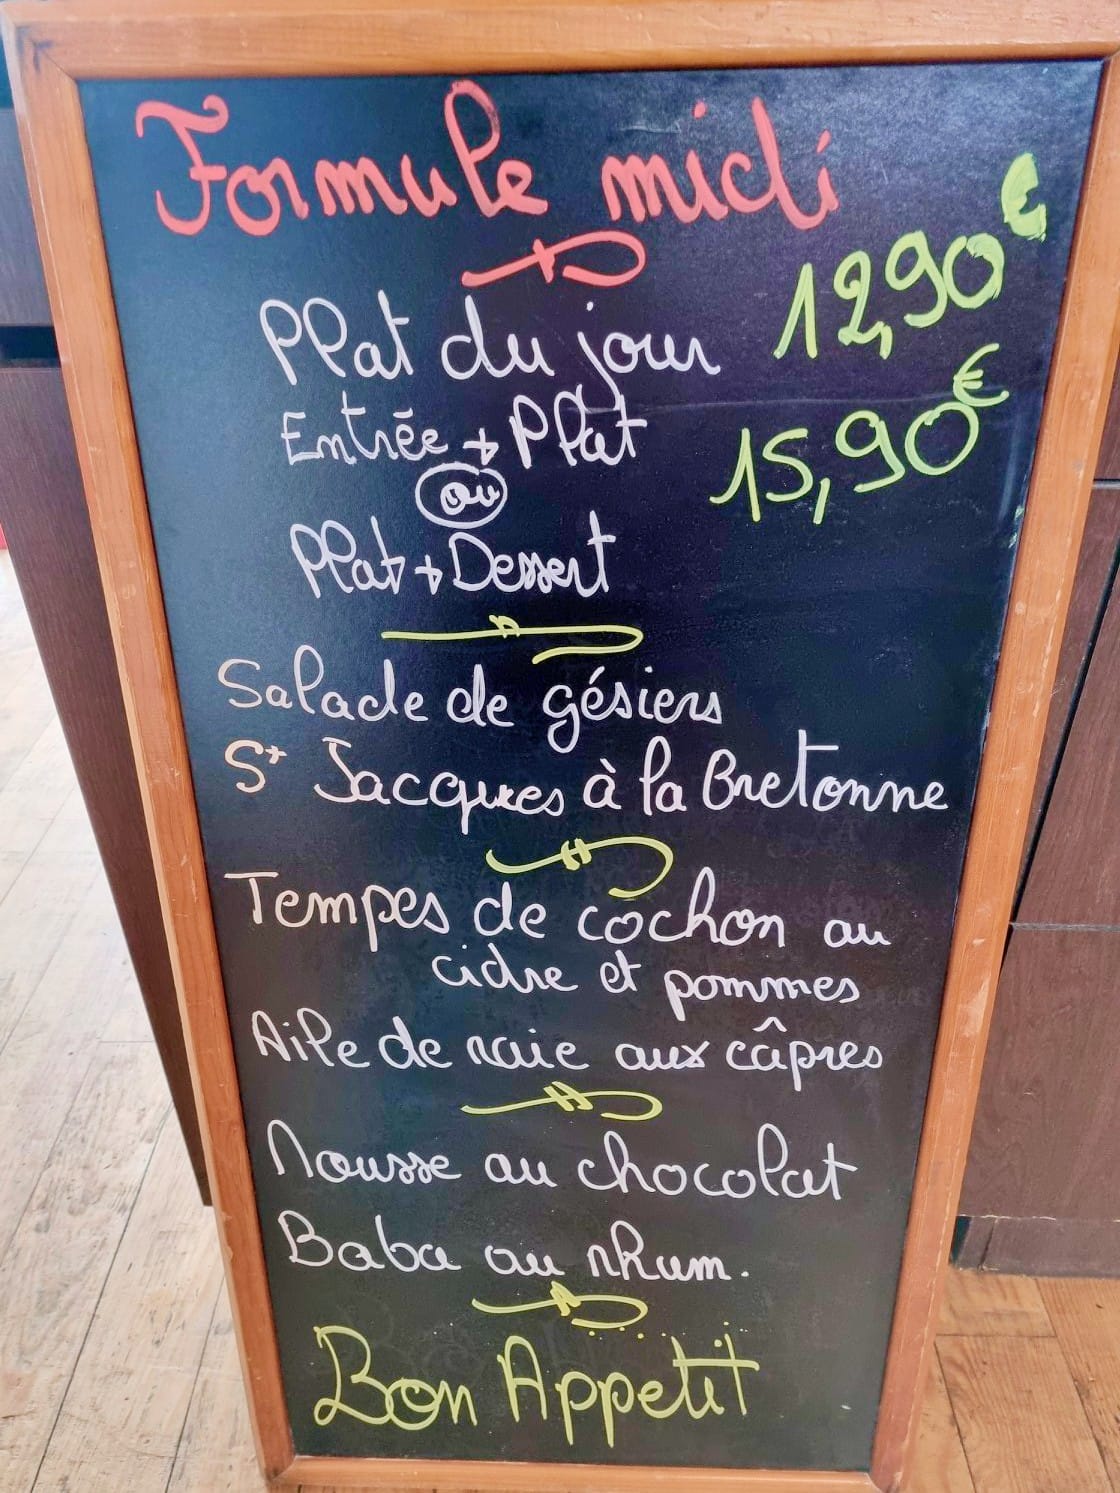 Formule midi
Plat du jour 12,90€
Entrée + Plat 15,90€
ou
Plat + Dessert
Salade de gésiers
St Jacques à la Bretonne
Tempes de cochon au
cidre et pommes
Aile de raie aux câpres
Mousse au chocolat
Baba au rhum.
Bon Appetit